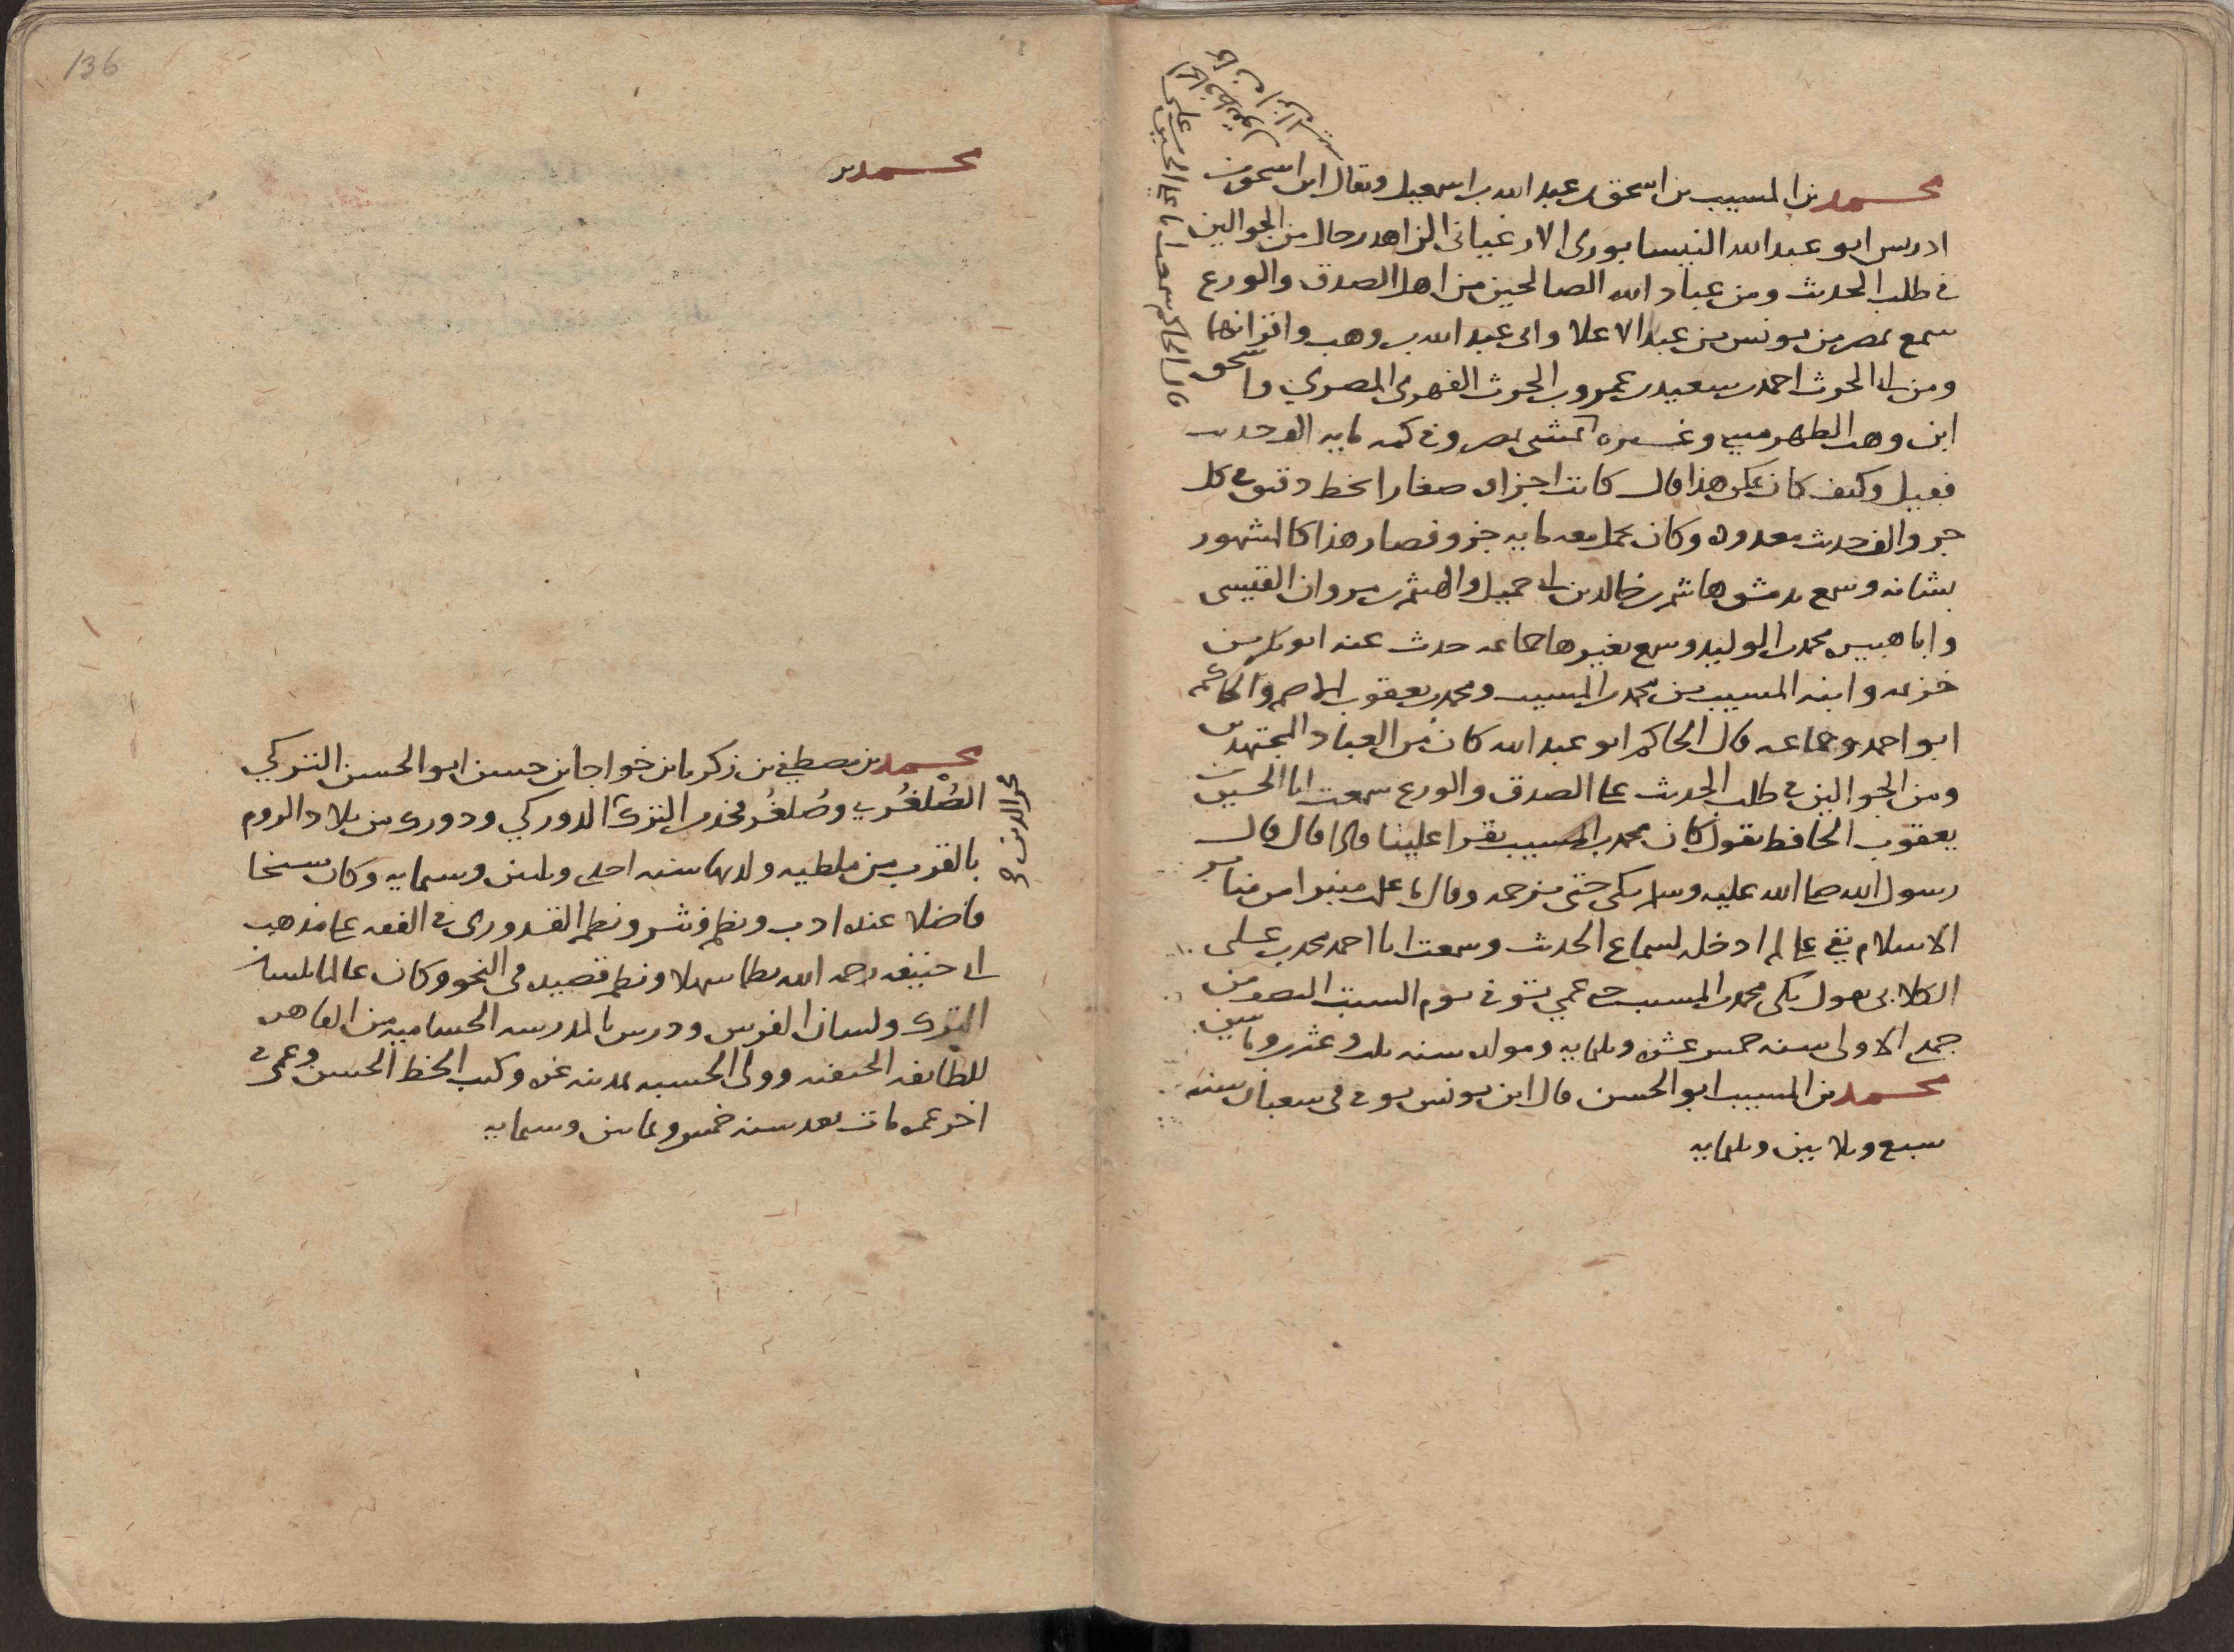 محمد بن المسيب بن اسحق بن عبد الله بن اسمعيل ويقال ابن اسحق بن
ادريس ابو عبد الله النيسابوري الارغياني الزاهد رحال من الجوالين
في طلب الحديث ومن عباد الله الصالحين من اهل الصدق والورع
سمع بمصر من يونس بن عبد الاعلا وابي عبيد الله بن وهب واقرانهما
ومن ابي الحرث احمد بن سعيد بن عمرو بن الحرث الفهري المصري واسحق
ابن وهب الطهرمسي وغيره كمشى بمصر وفي كمه مايه الف حديث
فقيل وكيف كان يمكن هذا قال كانت اجزاه صغارا بخط دقيق في كل
جزو الف حديث معدوده وكان يحمل معه مايه جزو فصار هذا كالمشهور
بشانه وسمع بدمشق هاشم بن خالد بن ابي جميل والهيثم بن مروان القيسي
وابا هبيره محمد بن الوليد وسمع بغيرها جماعه حدث عنه ابو بكر بن
خزيمه وابنه المسيب بن محمد بن المسيب ومحمد بن يعقوب الاصم والحاكم
ابو احمد وجماعه قال الحاكم ابو عبد الله كان من العباد المجتهدين
ومن الجوالين في طلب الحديث على الصدق والورع سمعت ابا الحسين بن
يعقوب الحافظ يقول كان محمد بن المسيب يقرا علينا فاذا قال قال
رسول الله صلى الله عليه وسلم بكى حتى نرحمه وقال ما اعلم منبرا من منابر
الاسلام بقي علي لم ادخله لسماع الحديث وسمعت ابا احمد محمد بن علي
الكلابي يقول بكى محمد بن المسيب حتى عمي توفي يوم السبت النصف من
جمدى الاولى سنه خمس عشره وثلثمايه ومولده سنه ثلث وعشرين ومايتين
محمد بن المسيب ابو الحسن قال ابن يونس توفي في شعبان سنه
سبع وثلاثين وثلثمايه
قال الحاكم سمعت ابا علي الحسين بن علي
136
محمد بن
محمد بن مصطفى بن زكريا بن خواجا بن حسن ابو الحسن التركي
الصُلْغُري وصُلغُر فخذ من الترك الدوركي ودوركي من بلاد الروم
فخر الدين
بالقرب من ملطيه ولد بها سنه احدى وثلثين وستمايه وكان شيخا
فاضلا عنده ادب ونظم ونثر ونظم القدوري في الفقه على مذهب
ابي حنيفه رحمه الله نظما سهلا ونظم قصيده في النحو وكان عالما بلسان
الترك ولسان الفرس ودرس بالمدرسه الحساميه من القاهره
للطايفه الحنفيه وولى الحسبه بمدينه غزه وكتب الخط الحسن وعمي في
اخر عمره مات بعد سنه خمس وثمانين وستمايه